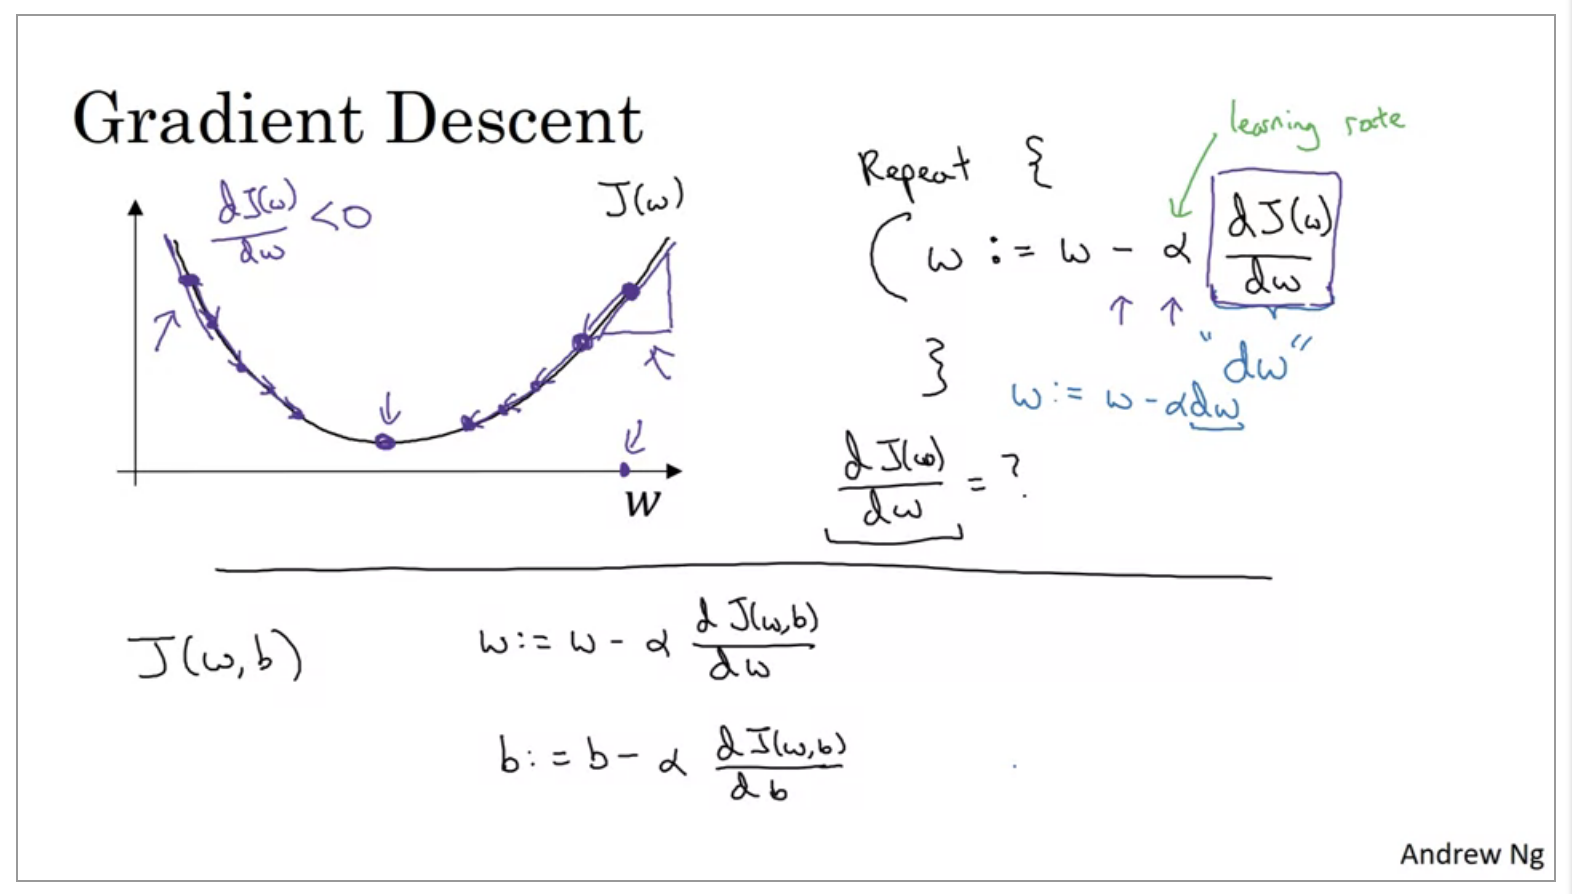 Gradient Descent
dJ(w)/dw < 0
J(w)
w
learning rate
Repeat {
w := w - α dJ(w)/dw
}
"dw"
w := w - αdw
dJ(w)/dw = ?
J(w,b)
w := w - α dJ(w,b)/dw
b := b - α dJ(w,b)/db
Andrew Ng